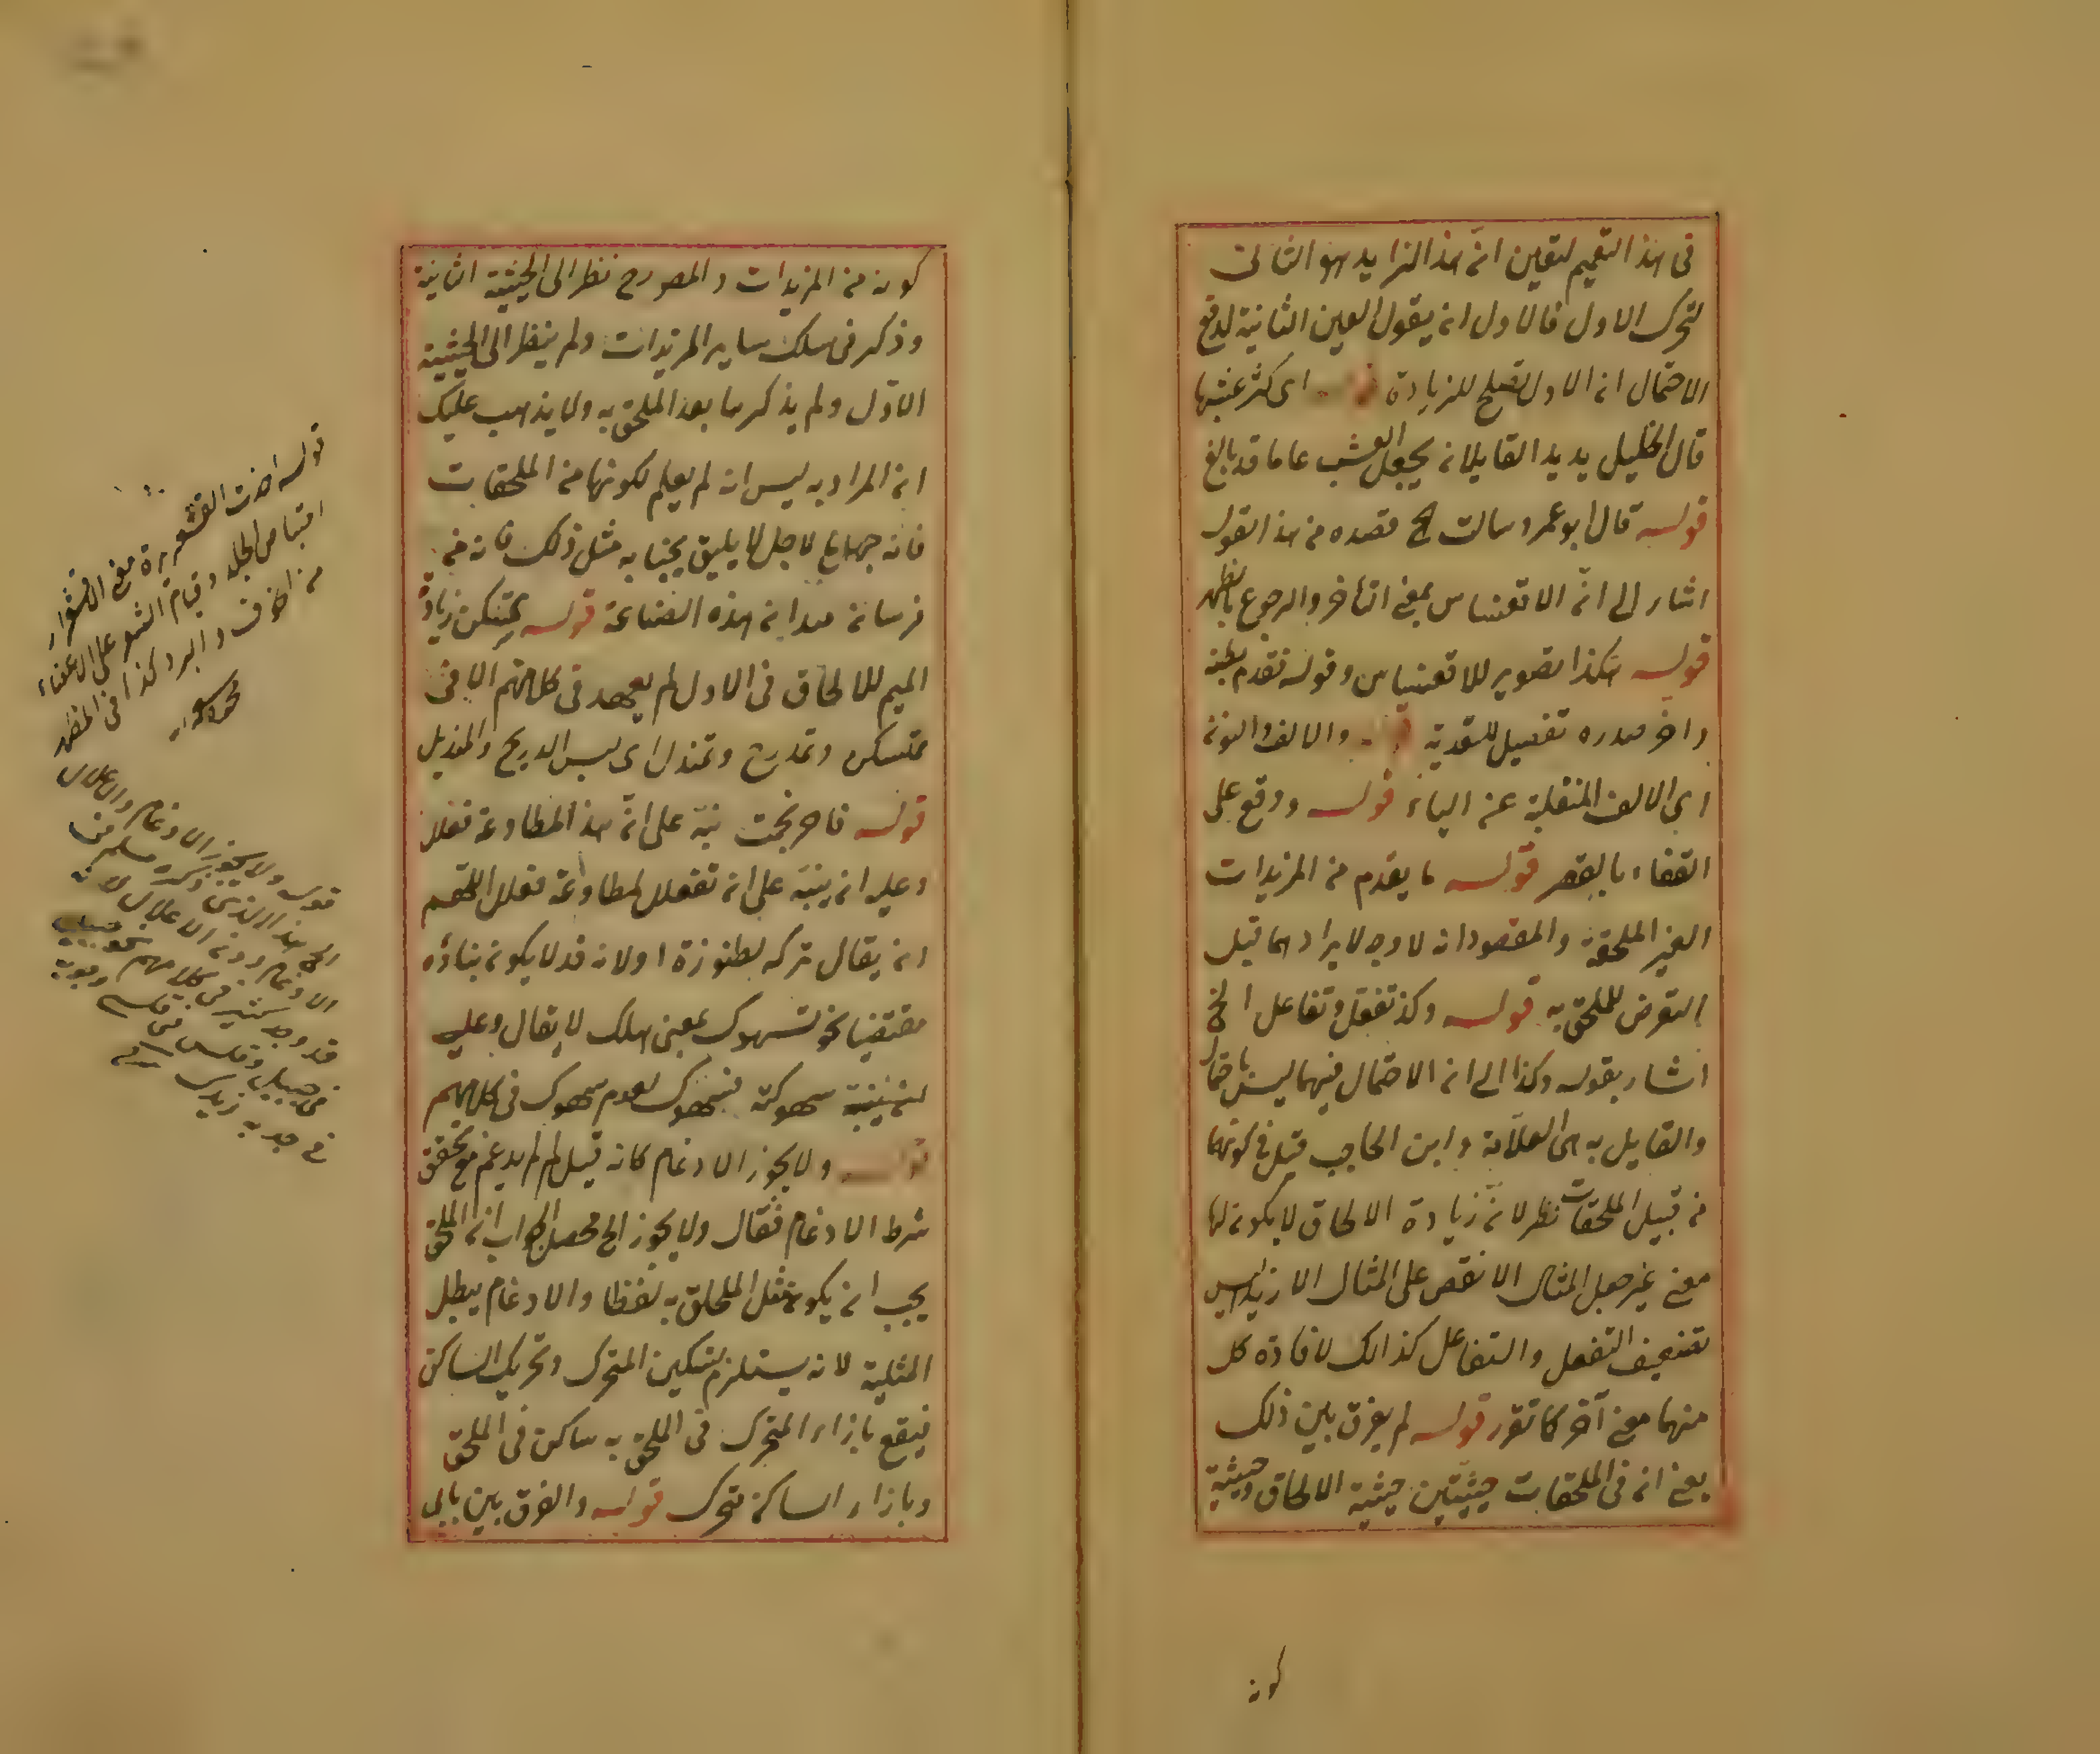 فى هذا التعميم لتعين انّ هذا الزايد هو الثانى
لتحرك الاول فالاولى ان يقول العين الثانية لدفع
الاحتمال ان الاول تصلح للزيادة اى كثر عشبها
قال الخليل يريد القايلان يجعل العشب عاما قد بالغ
قوله قال ابو عمرو سالت الخ مقصده من هذا القول
اشار الى انّ الاقعنساس بمعنى التأخر والرجوع
قوله هكذا تصوير للاقعنساس وقوله فقدم بطنه
واخر صدره تفصيل للتقدية والالف والنون
اى الالف المنقلبة عن الياء قوله ووقع على
القفاء بالقصر قوله ما يقدم من المزيدات
الغير الملحقة والمقصود انه لا وجه لايرادهما قبل
التعرض للملحق به قوله وكذا تفعل وتفاعل الخ
اشار بقوله وكذا الى ان الاحتمال فيهما ليس
والقايل به هى العلاّمة وابن الحاجب قيل فى كونهما
من قبيل الملحقات نظر لانّ زيادة الالحاق لا يكون لها
معنى غير جعل المثال الانقص على المثال الازيد وليس
تضعيف التفعل والتفاعل كذالك لافادة كل
منهما معنى آخر كما تقرر قوله لم يفرق بين ذلك
يعنى ان فى الملحقات حيثيّتين حيثية الالحاق وحيثية
كونه
كونه من المزيدات والمص رح نظر الى الحيثية الثانية
وذكر فى سلك ساير المزيدات ولم ينظر الى الحيثية
الاوّل ولم يذكرها بعد الملحق به ولا يذهب عليك
ان المراد به ليس انه لم يعلم لكونها من الملحقات
فانه جهل لا يليق بجنابه مثل ذلك فانه من
فرسان ميدان هذه الصناعة قوله تمسكن زيادة
الميم للالحاق فى الاول لم يعهد فى كلامهم الا فى
تمسكن وتمدرع وتمندل اى لبس الدرع والمنديل
قوله فاحرنجمت نبّه على انّ هذا المطاوعة فعلل
وعليه ان ينبّه على ان تفعلل لمطاوعة فعلل اللهم
ان يقال تركه لظهوره اولا نه قد لا يكون بناؤه
مقتضيا نحو تسهوك بمعنى هلك لا يقال وعليه
سهوكته فتسهوك لعدم سهوك فى كلامهم
قوله ولا يجوز الادغام كانه قيل لم لم يدغم مع تحقق
شرط الادغام فقال ولا يجوز الخ محصل الجواب ان الملحق
يجب ان يكون مثل الملحق به لفظا والادغام يبطل
المثلية لانه يستلزم تسكين المتحرك وتحريك الساكن
فيقع بازاء المتحرك فى الملحق به ساكن فى الملحق
وبازاء الساكن متحرك قوله والفرق بين بابى
قوله اخذت القشعريرة معنى اقشعرار
انقباض الجلد وقيام الشعر على الاعضاء
من الخوف والبرد كذا فى المظهر
قوله ولا يجوز الادغام والاعلال
الادغام دون الاعلال لانه
قد وجد كثير فى كلامهم نحو